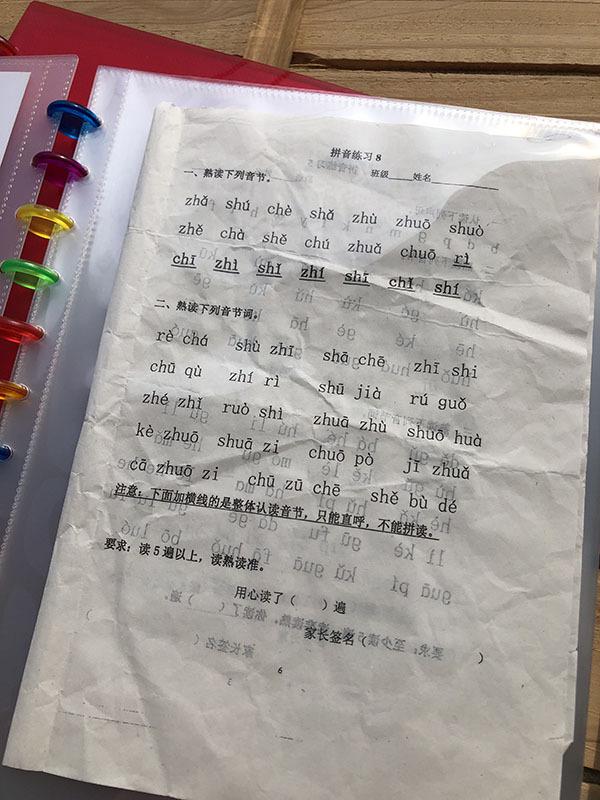 拼音练习8
一、熟读下列音节。 班级____姓名__________
zhǎ shú chè shǎ zhù zhuō shuò
zhě chà shě chú zhuǎ chuō rì
chī zhì shǐ zhí shī chǐ shí
二、熟读下列音节词。
rè chá shù zhī shā chē zhī shi
chū qù zhí rì shū jià rú guǒ
zhé zhǐ ruò shì zhuā zhù shuō huà
kè zhuō shuā zi chuō pò jī zhuǎ
cā zhuō zi chū zū chē shě bù dé
注意：下面加横线的是整体认读音节，只能直呼，不能拼读。
要求：读5遍以上，读熟读准。
用心读了（ ）遍
家长签名（ ）
6